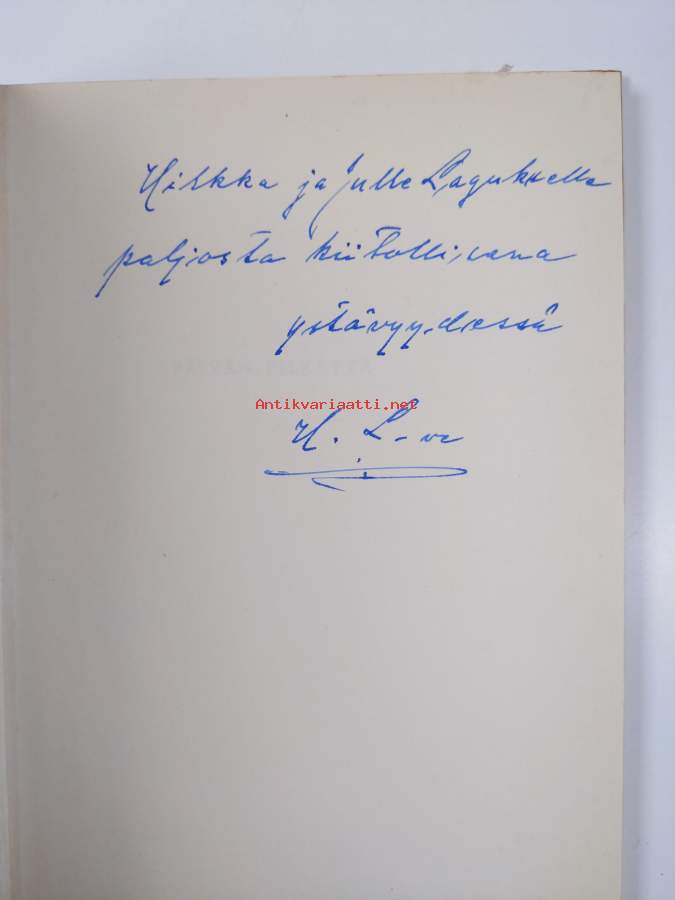 Hilkka ja Julle Laguksella
paljosta kiitollisena
ystävyydessä
Antikvariaatti.net
H. L-va